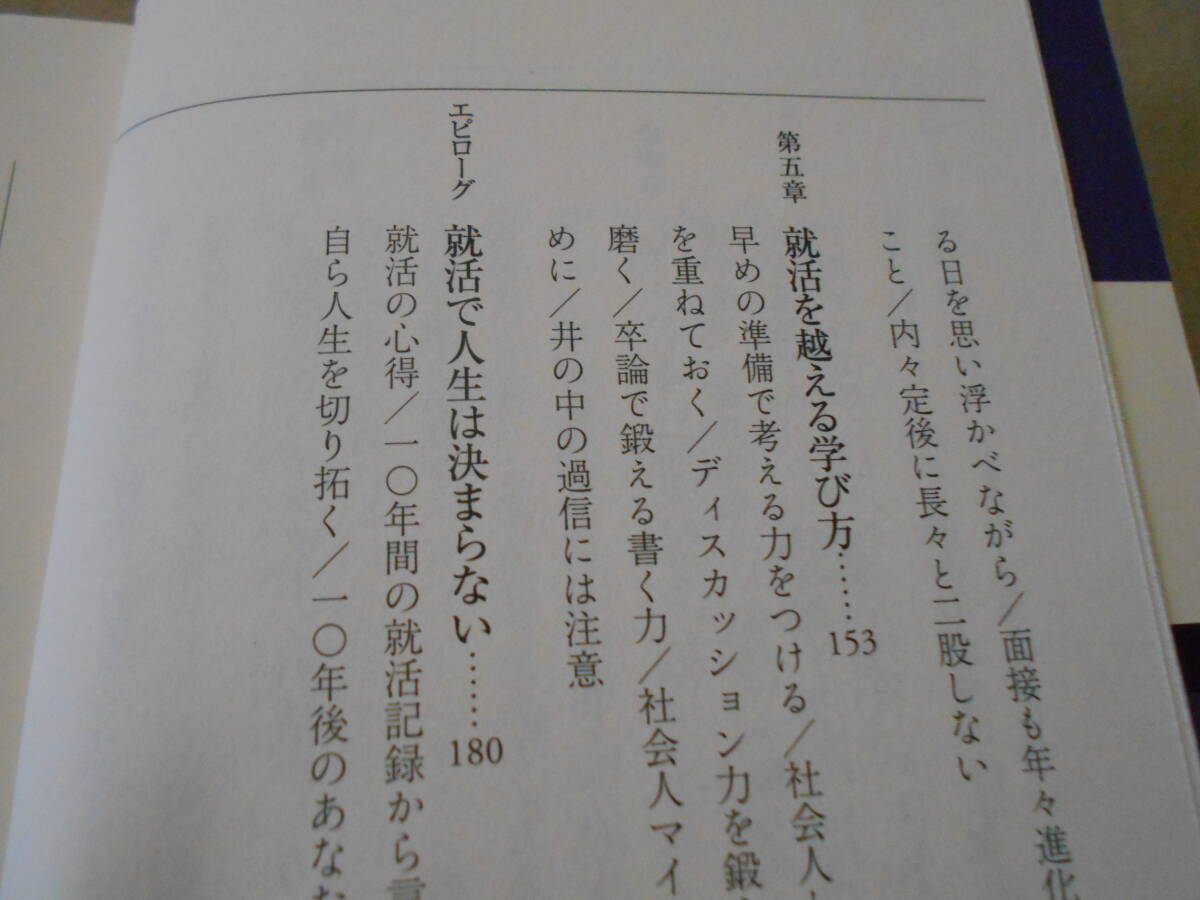 る日を思い浮かべながら／面接も年々進化
こと／内々定後に長々と二股しない
第五章
就活を越える学び方……153
早めの準備で考える力をつける／社会人
を重ねておく／ディスカッション力を鍛
磨く／卒論で鍛える書く力／社会人マイ
めに／井の中の過信には注意
エピローグ
就活で人生は決まらない……180
就活の心得／一〇年間の就活記録から言
自ら人生を切り拓く／一〇年後のあな